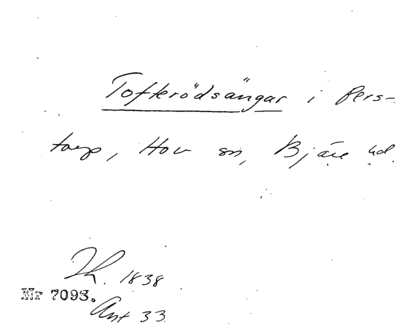 Tofterödsängar i Pers-
torp, Hov sn, Bjäre hd.
1838
Nr 7093.
Ant 33